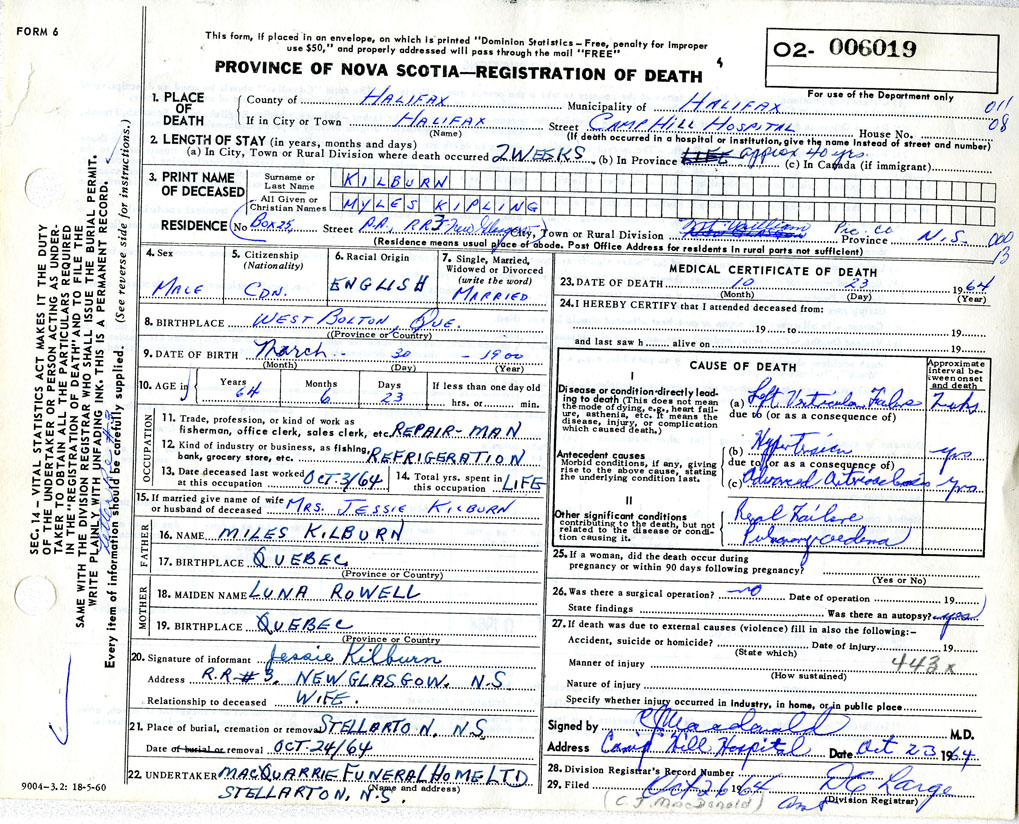 FORM 6
This form, if placed in an envelope, on which is printed "Dominion Statistics – Free, penalty for improper
use $50," and properly addressed will pass through the mail "FREE"
PROVINCE OF NOVA SCOTIA—REGISTRATION OF DEATH
02- 006019
For use of the Department only
1. PLACE OF DEATH
County of HALIFAX Municipality of HALIFAX 011
If in City or Town HALIFAX Street CAMP HILL HOSPITAL House No. 08
(Name) (If death occurred in a hospital or institution, give the name instead of street and number)
2. LENGTH OF STAY (in years, months and days)
(a) In City, Town or Rural Division where death occurred 2 WEEKS (b) In Province LIFE approx 40 yrs. (c) In Canada (if immigrant)
3. PRINT NAME OF DECEASED
Surname or Last Name KILBURN
All Given or Christian Names MYLES KIPLING
RESIDENCE No Box 25, Street RR3 New Glasgow City, Town or Rural Division Pic. Co Province N.S. 000
13
(Residence means usual place of abode. Post Office Address for residents in rural parts not sufficient)
4. Sex
MALE
5. Citizenship
(Nationality)
CDN.
6. Racial Origin
ENGLISH
7. Single, Married,
Widowed or Divorced
(write the word)
MARRIED
8. BIRTHPLACE WEST BOLTON, QUE.
(Province or Country)
9. DATE OF BIRTH March 30 - 1900
(Month) (Day) (Year)
10. AGE in
Years Months Days If less than one day old
64 6 23 hrs. or min.
OCCUPATION
11. Trade, profession, or kind of work as
fisherman, office clerk, sales clerk, etc. REPAIR-MAN
12. Kind of industry or business, as fishing,
bank, grocery store, etc. REFRIGERATION
13. Date deceased last worked
at this occupation OCT. 3/64
14. Total yrs. spent in
this occupation LIFE
15. If married give name of wife
or husband of deceased MRS. JESSIE KILBURN
FATHER
16. NAME MILES KILBURN
17. BIRTHPLACE QUEBEC
(Province or Country)
MOTHER
18. MAIDEN NAME LUNA ROWELL
19. BIRTHPLACE QUEBEC
(Province or Country
20. Signature of informant Jessie Kilburn
Address R.R.#3, NEW GLASGOW, N.S.
Relationship to deceased WIFE.
21. Place of burial, cremation or removal STELLARTON, N.S.
Date of burial or removal OCT. 24/64
22. UNDERTAKER MACQUARRIE FUNERAL HOME LTD
(Name and address)
STELLARTON, N.S.
9004–3.2: 18-5-60
MEDICAL CERTIFICATE OF DEATH
23. DATE OF DEATH 10 23 1964
(Month) (Day) (Year)
24. I HEREBY CERTIFY that I attended deceased from:
19 to 19
and last saw h alive on 19
CAUSE OF DEATH
Approximate
interval be-
tween onset
and death
I
Disease or condition directly lead-
ing to death (This does not mean
the mode of dying, e.g., heart fail-
ure, asthenia, etc. It means the
disease, injury, or complication
which caused death.)
(a) Left Ventricular Failure 2 wks
due to (or as a consequence of)
Antecedent causes
Morbid conditions, if any, giving
rise to the above cause, stating
the underlying condition last.
(b) Hypertension yrs
due to (or as a consequence of)
(c) Advanced Arteriosclerosis yrs
II
Other significant conditions
contributing to the death, but not
related to the disease or condi-
tion causing it.
Renal Failure
Pulmonary oedema
25. If a woman, did the death occur during
pregnancy or within 90 days following pregnancy?
(Yes or No)
26. Was there a surgical operation? no Date of operation 19
State findings Was there an autopsy? yes
27. If death was due to external causes (violence) fill in also the following:–
Accident, suicide or homicide? Date of injury 19
(State which)
Manner of injury 443x
(How sustained)
Nature of injury
Specify whether injury occurred in industry, in home, or in public place
Signed by C Macdonald M.D.
Address Camp Hill Hospital Date Oct 23 1964
28. Division Registrar's Record Number
29. Filed Oct 26 1964 D C Large
(Division Registrar)
(C. J. MacDonald)
SEC. 14 – VITAL STATISTICS ACT MAKES IT THE DUTY
OF THE UNDERTAKER OR PERSON ACTING AS UNDER-
TAKER TO OBTAIN ALL THE PARTICULARS REQUIRED
IN THE "REGISTRATION OF DEATH" AND TO FILE THE
SAME WITH THE DIVISION REGISTRAR WHO SHALL ISSUE THE BURIAL PERMIT.
WRITE PLAINLY WITH UNFADING INK–THIS IS A PERMANENT RECORD.
Every item of information should be carefully supplied. (See reverse side for instructions.)